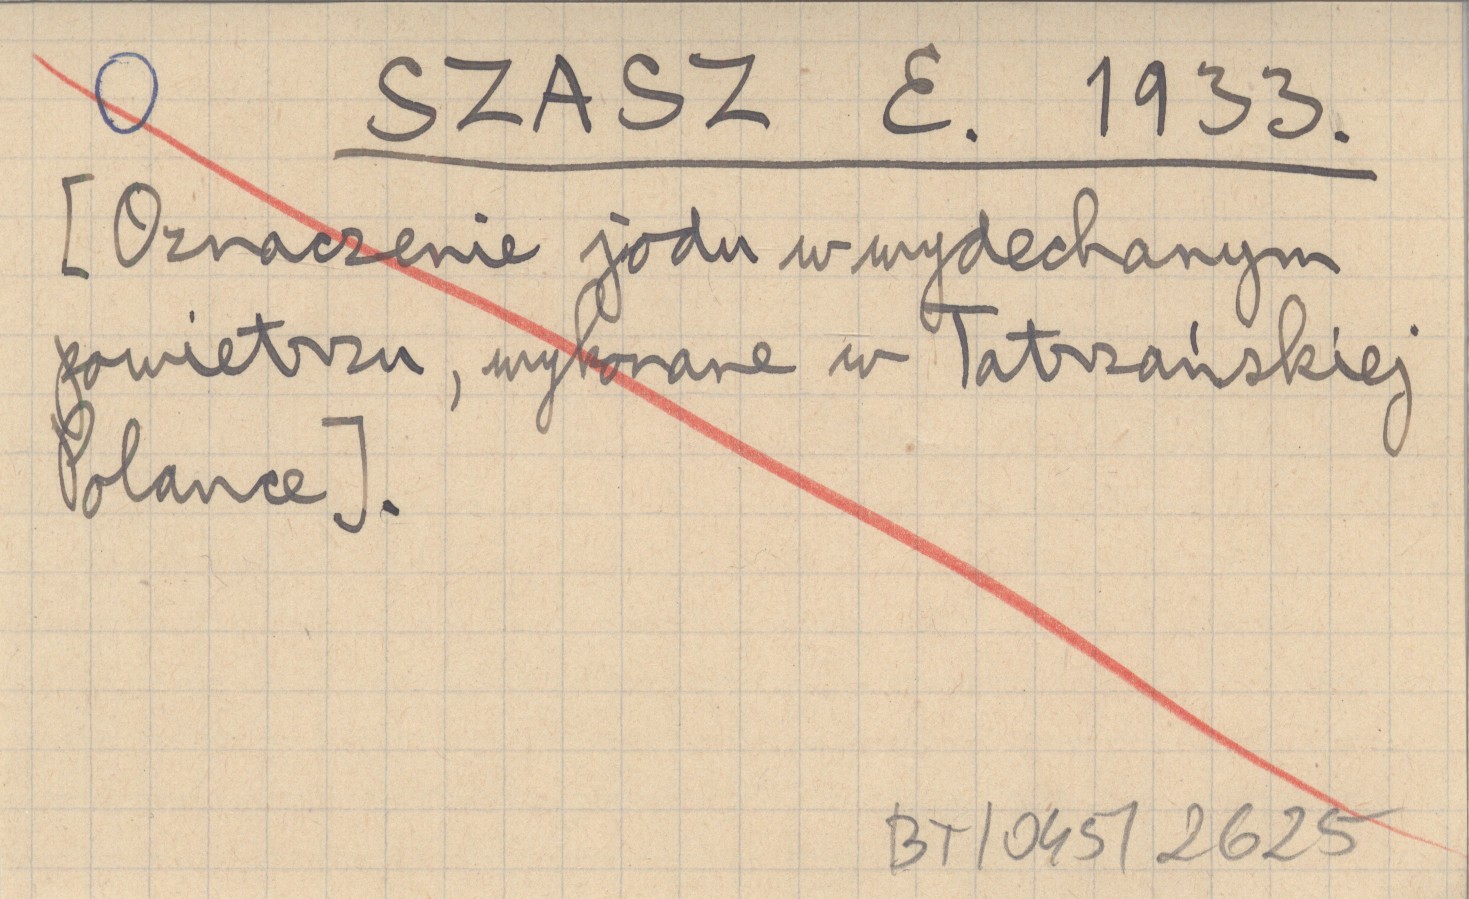 O SZASZ E. 1933.
[Oznaczenie jodu w wydechanym
powietrzu, wykonane w Tatrzańskiej
Polance].
BT/045/2625